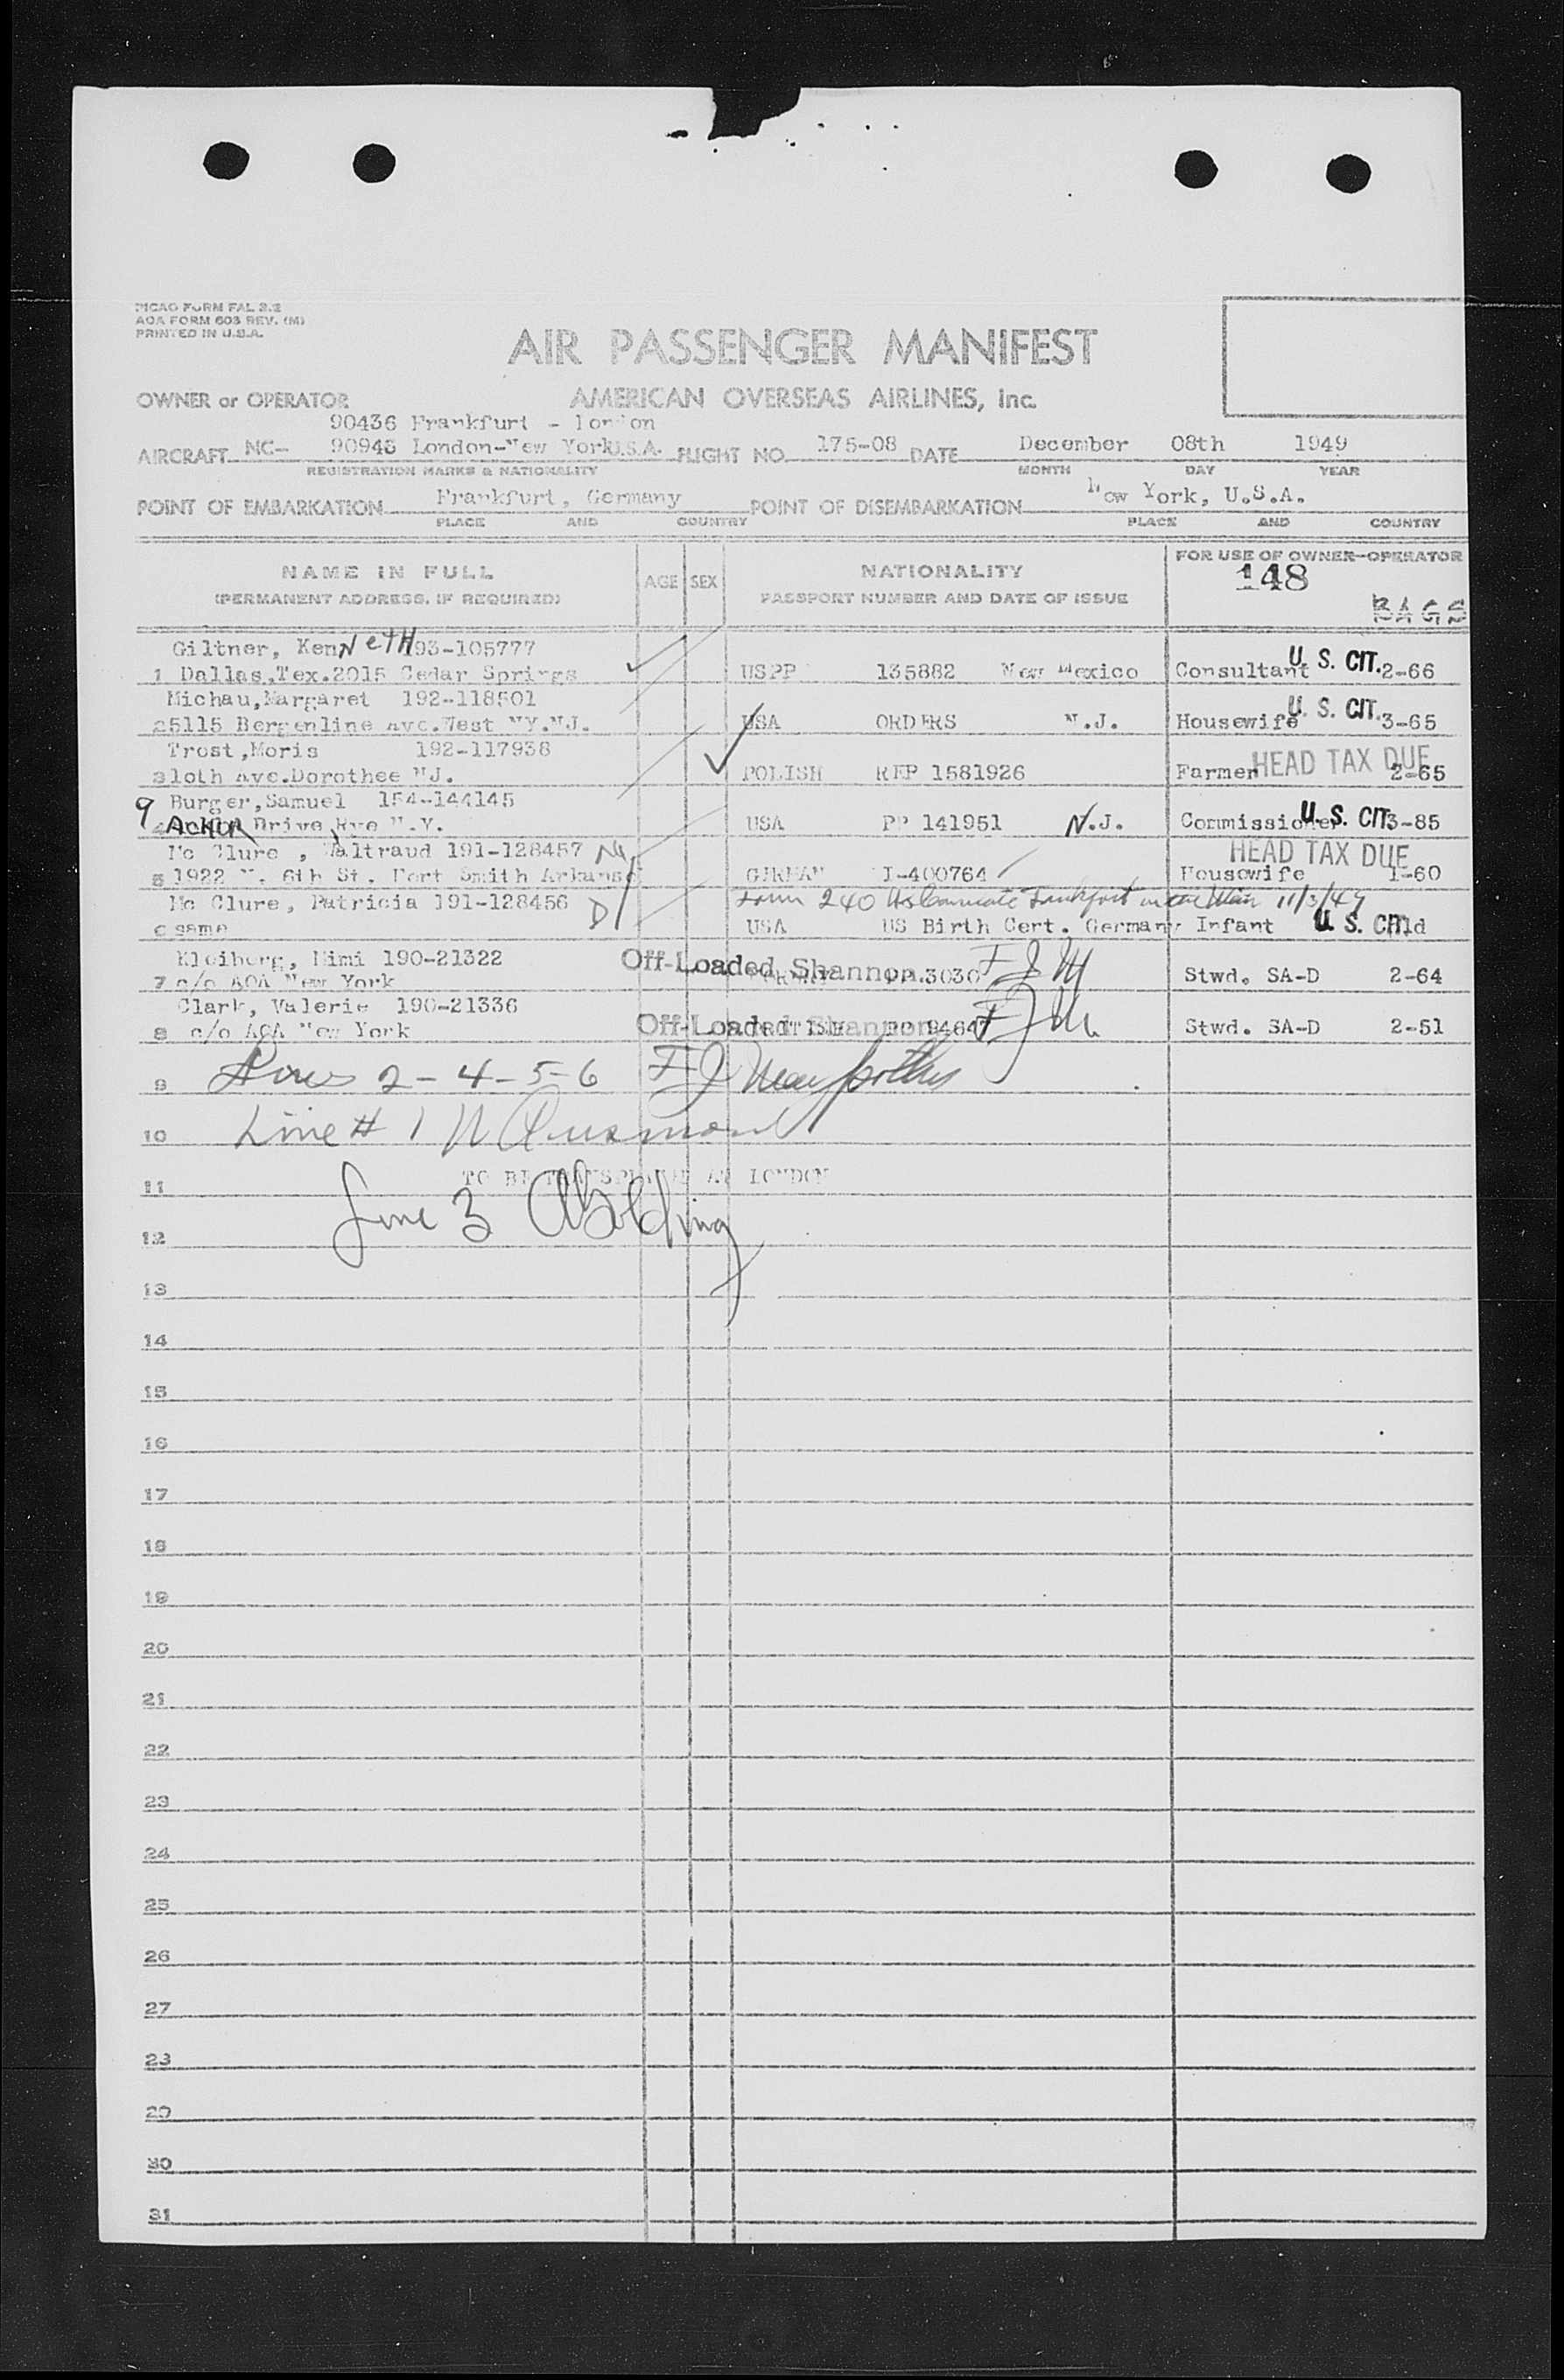 PICAO FORM FAL 2.2
AOA FORM 603 REV. (M)
PRINTED IN U.S.A.
AIR PASSENGER MANIFEST
OWNER or OPERATOR AMERICAN OVERSEAS AIRLINES, Inc.
90436 Frankfurt - London
AIRCRAFT NC- 90948 London-New York U.S.A. FLIGHT NO. 175-08 DATE December 08th 1949
REGISTRATION MARKS & NATIONALITY MONTH DAY YEAR
POINT OF EMBARKATION Frankfurt, Germany POINT OF DISEMBARKATION New York, U.S.A.
PLACE AND COUNTRY PLACE AND COUNTRY
NAME IN FULL AGE SEX NATIONALITY FOR USE OF OWNER-OPERATOR
(PERMANENT ADDRESS, IF REQUIRED) PASSPORT NUMBER AND DATE OF ISSUE 148
BAGS
Giltner, KenNetH 193-105777
1 Dallas,Tex.2015 Cedar Springs USPP 135882 New Mexico Consultant U. S. CIT. 2-66
Michau,Margaret 192-118501
2 5115 Bergenline Ave.West NY.NJ. USA ORDERS N.J. Housewife U. S. CIT. 3-65
Trost,Moris 192-117938
3 loth Ave.Dorothee NJ. POLISH REP 1581926 Farmer HEAD TAX DUE 2-65
Burger,Samuel 154-144145
9 4 Drive Rye N.Y. USA PP 141951 N.J. Commissioner U. S. CIT 3-85
Mc Clure , Waltraud 191-128457
5 1922 N. 6th St. Fort Smith Arkansas GERMAN I-400764 Housewife HEAD TAX DUE 1-60
Mc Clure, Patricia 191-128456 Form 240 11/3/49
6 same USA US Birth Cert. Germany Infant U. S. CIT
Kleiberg, Mimi 190-21322 Off-Loaded Shannon. FJM
7 c/o AOA New York 3030 Stwd. SA-D 2-64
Clark, Valerie 190-21336
8 c/o AOA New York Off-Loaded Shannon. 94647 FJM Stwd. SA-D 2-51
9 Lines 2-4-5-6 FJ
10 Line # 1
11 TO BE AT LONDON
12 Line 3
13
14
15
16
17
18
19
20
21
22
23
24
25
26
27
28
29
30
31